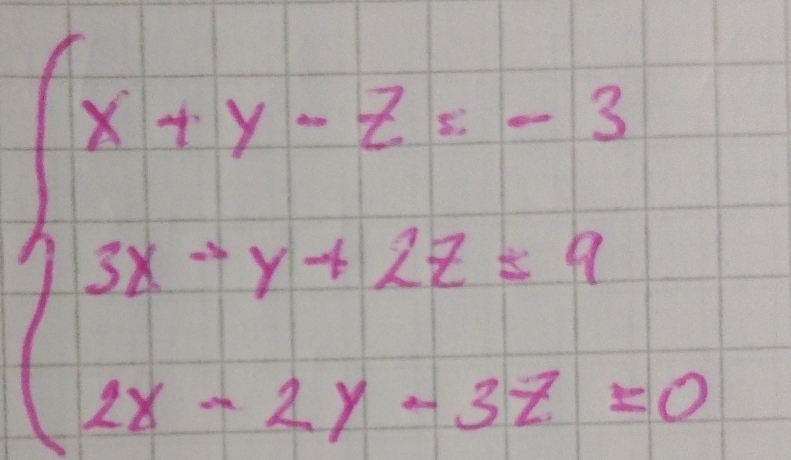 x + y - z = - 3
3x - y + 2z = 9
2x - 2y - 3z = 0